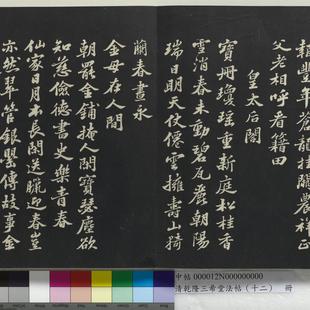 報豐年蒼龍挂闕農祥正
父老相呼看籍田
皇太后閣
寶冊瓊瑤重新庭松桂香
雪消春未動碧瓦麗朝陽
瑞日明天仗僊雲擁壽山猗
蘭春晝永
金母在人間
朝罷金鋪掩人間寶瑟塵欲
知慈儉德書史樂青春
仙家日月本長閑送臘迎春豈
亦然翠管銀罌傳故事金
中帖 000012N000000000
清乾隆三希堂法帖(十二) 冊